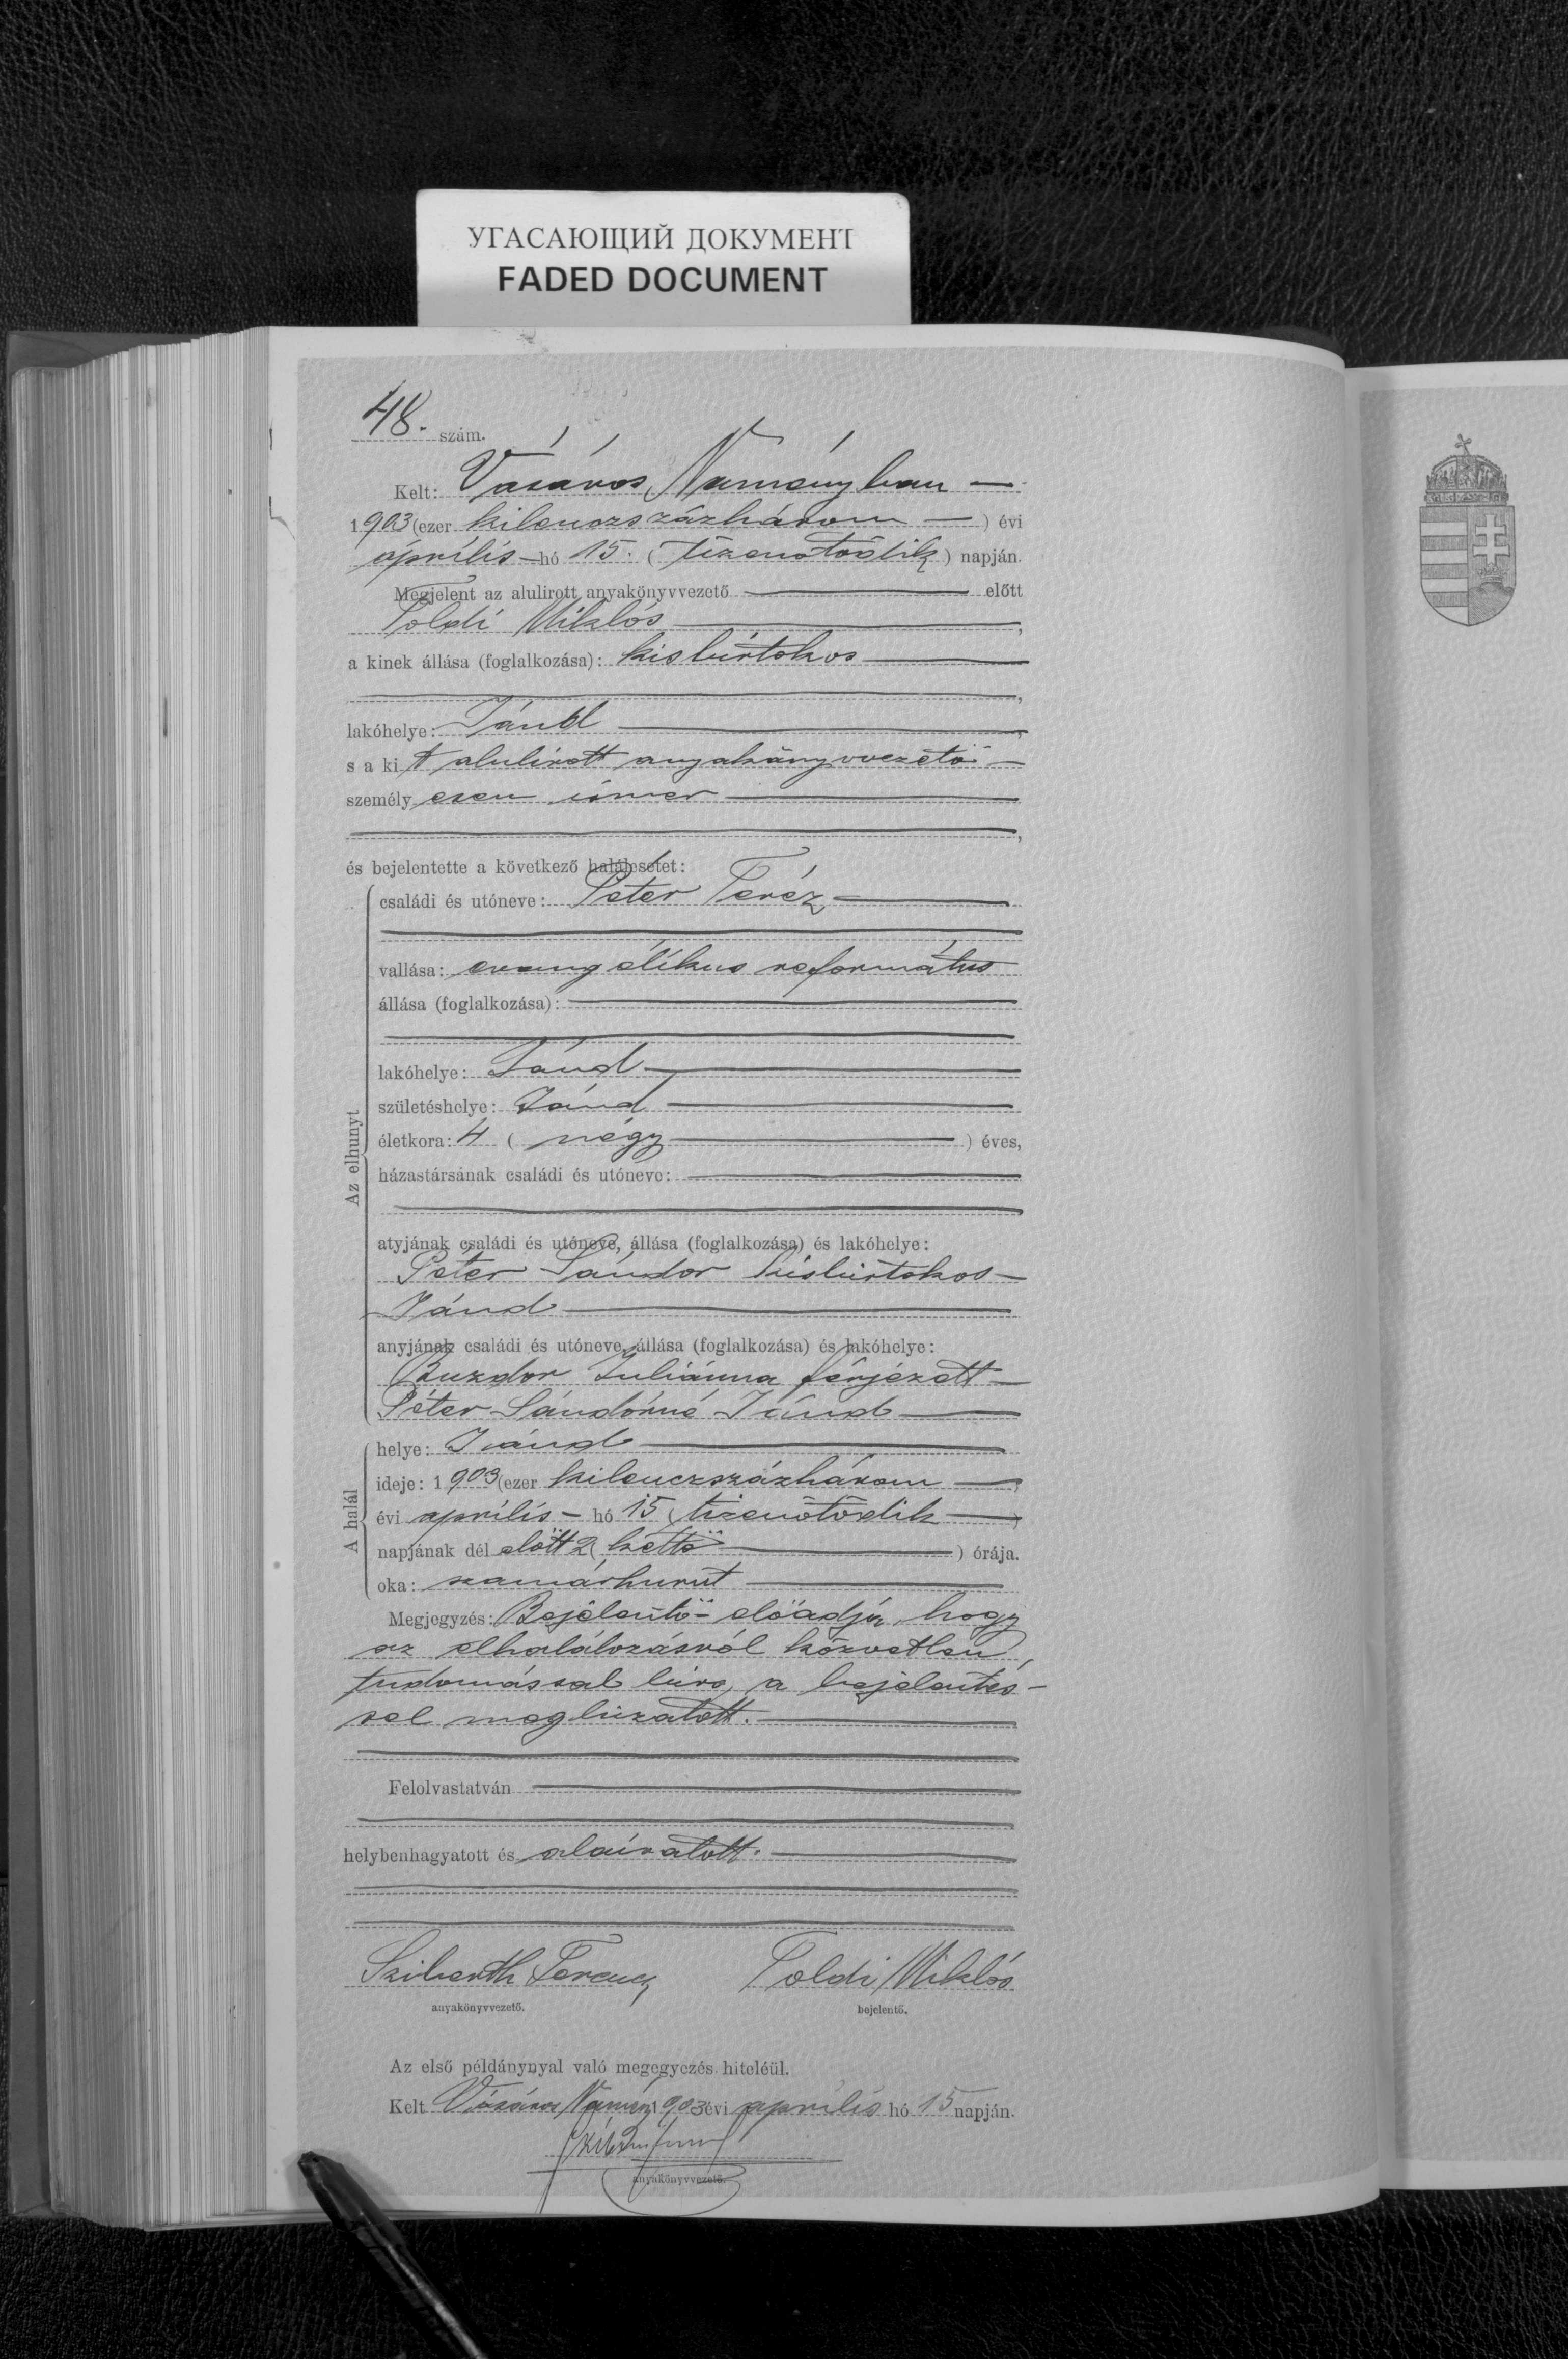 УГАСАЮЩИЙ ДОКУМЕНТ
FADED DOCUMENT
48. szám.
Kelt: Vásáros Naményban —
1903 (ezer kilenczszázhárom —) évi
április — hó 15. (tizenötödik) napján.
Megjelent az alulirott anyakönyvvezető — előtt
Toldi Miklós —,
a kinek állása (foglalkozása): kisbirtokos —
lakóhelye: Jánd —,
s a ki t alulírott anyakönyvvezető —
személyesen ismer —,
és bejelentette a következő halálesetet:
Az elhunyt
családi és utóneve: Péter Teréz —
vallása: evangélikus református
állása (foglalkozása): —
lakóhelye: Jánd —
születéshelye: Jánd —
életkora: 4 (négy —) éves,
házastársának családi és utóneve: —
atyjának családi és utóneve, állása (foglalkozása) és lakóhelye:
Péter Sándor kisbirtokos —
Jánd —
anyjának családi és utóneve, állása (foglalkozása) és lakóhelye:
Juliánna férjézett —
Péter Sándorné Jánd —
A halál
helye: Jánd —
ideje: 1903 (ezer kilenczszázhárom —)
évi április — hó 15 (tizenötödik —)
napjának dél előtt 2 (kettő —) órája.
oka: szamárhurut —
Megjegyzés: Bejelentő előadja, hogy
az elhalálozásról közvetlen
tudomással bir, a bejelentés-
sel megbizatott. —
Felolvastatván —
helybenhagyatott és aláiratott. —
Ferencz Toldi Miklós
anyakönyvvezető. bejelentő.
Az első példánynyal való megegyezés hiteléül.
Kelt Vásáros Namény 1903 évi április hó 15 napján.
anyakönyvvezető.